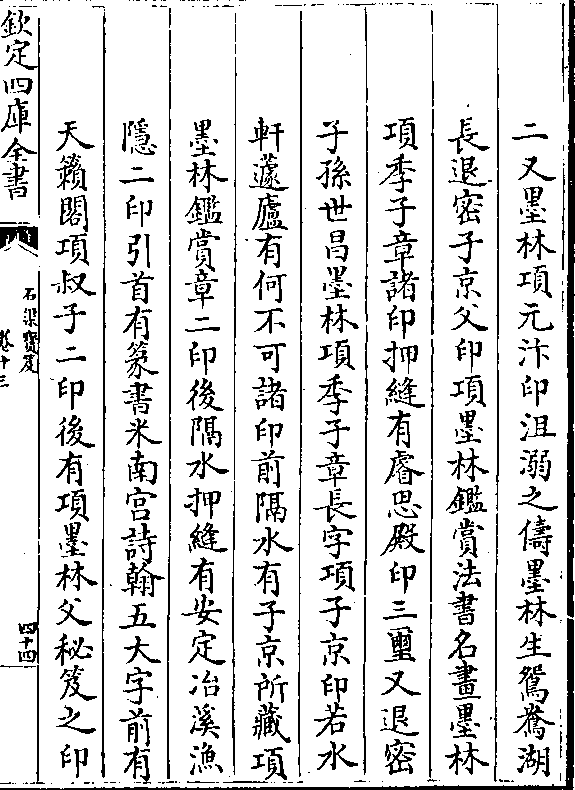 二又墨林項元汴印沮溺之儔墨林生鴛鴦湖
長退密子京父印項墨林鑑賞法書名畫墨林
項季子章諸印押縫有睿思殿印三璽又退密
子孫世昌墨林項季子章長字項子京印若水
軒蘧廬有何不可諸印前隔水有子京所藏項
墨林鑑賞章二印後隔水押縫有安定冶溪漁
隱二印引首有篆書米南宫詩翰五大字前有
天籟閣項叔子二印後有項墨林父秘笈之印
欽定四庫全書
石渠寳笈
卷十三
四十四